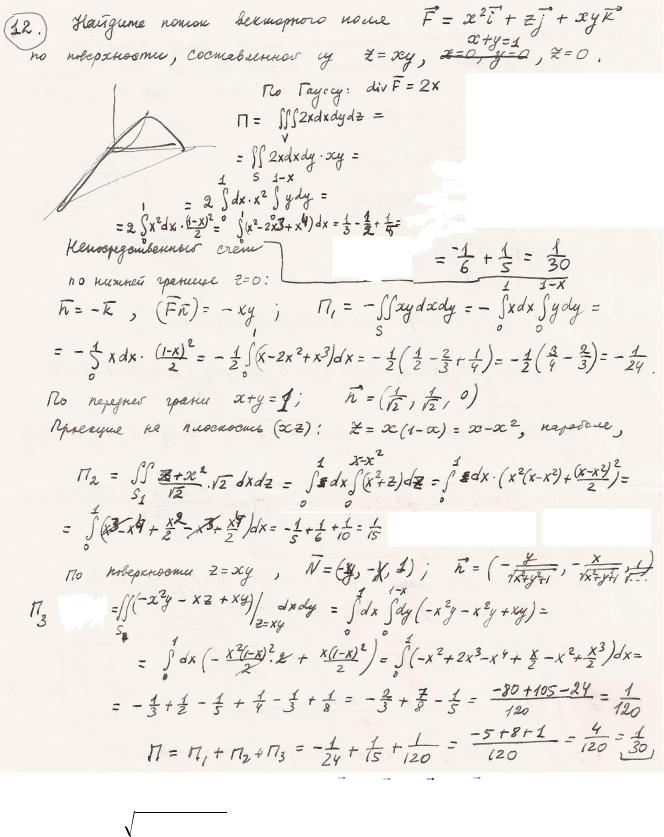 12. Найдите поток векторного поля F⃗ = x²i⃗ + zj⃗ + xyk⃗
x+y=1
по поверхности, составленной из z=xy, x=0, y=0, z=0.
По Гауссу: div F⃗ = 2x
П = ∭_V 2xdxdydz =
= ∬_S 2xdxdy·xy =
= 2 ∫₀¹ dx·x² ∫₀^{1-x} ydy =
= 2 ∫₀¹ x²dx·(1-x)²/2 = ∫₀¹ (x²-2x³+x⁴)dx = 1/3 - 1/2 + 1/5 =
= -1/6 + 1/5 = 1/30
Непосредственный счёт
по нижней границе z=0:
n⃗ = -k⃗, (F⃗n⃗) = -xy; П₁ = -∬_S xydxdy = -∫₀¹ xdx ∫₀^{1-x} ydy =
= -∫₀¹ xdx·(1-x)²/2 = -1/2 ∫₀¹ (x-2x²+x³)dx = -1/2 (1/2 - 2/3 + 1/4) = -1/2 (3/4 - 2/3) = -1/24.
По передней грани x+y=1; n⃗ = (1/√2, 1/√2, 0)
Проекция на плоскость (xz): z = x(1-x) = x-x², парабола,
П₂ = ∬_{S₁} (z+x²)/√2 · √2 dxdz = ∫₀¹ dx ∫₀^{x-x²} (x²+z)dz = ∫₀¹ dx·(x²(x-x²) + (x-x²)²/2) =
= ∫₀¹ (x³-x⁴+x²/2-x³+x⁴/2)dx = -1/5 + 1/6 + 1/10 = 1/15
По поверхности z=xy, N⃗ = (-y, -x, 1); n⃗ = (-y/√(x²+y²+1), -x/√(x²+y²+1), 1/√...)
П₃ = ∬_S (-x²y - xz + xy)|_{z=xy} dxdy = ∫₀¹ dx ∫₀^{1-x} dy(-x²y - x²y + xy) =
= ∫₀¹ dx(-x²(1-x)²/2·2 + x(1-x)²/2) = ∫₀¹ (-x²+2x³-x⁴+x/2-x²+x³/2)dx =
= -1/3 + 1/2 - 1/5 + 1/4 - 1/3 + 1/8 = -2/3 + 7/8 - 1/5 = (-80+105-24)/120 = 1/120
П = П₁+П₂+П₃ = -1/24 + 1/15 + 1/120 = (-5+8+1)/120 = 4/120 = 1/30